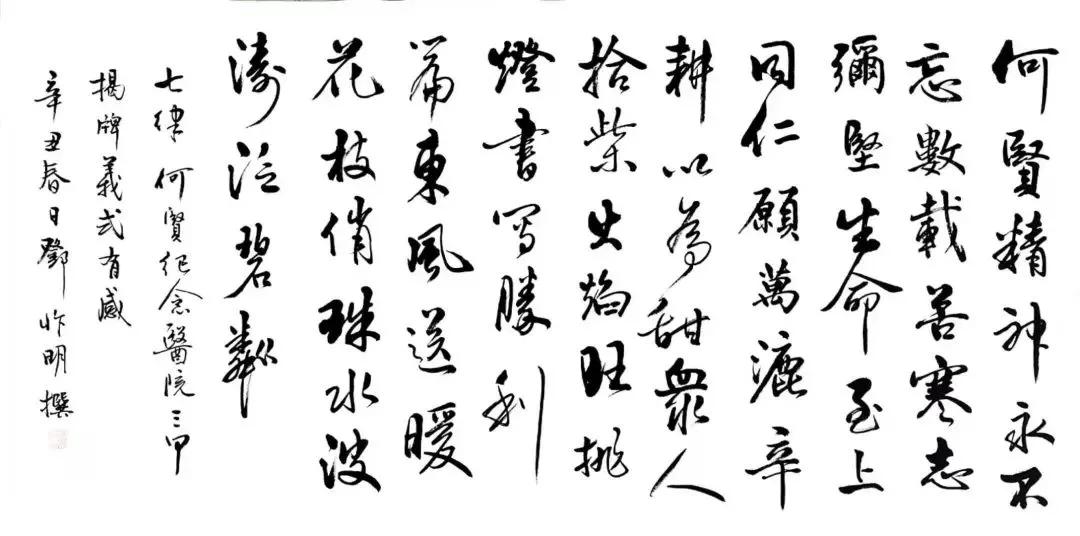 何賢精神永不
忘數載苦寒志
彌堅生命至上
同仁願萬漉辛
耕以為甜眾人
拾柴火焰旺挑
燈書寫勝利
篇東風送暖
花枝俏珠水波
濤泛碧粼
七律 何賢紀念醫院三甲
揭牌義式有感
辛丑春日鄧明撰